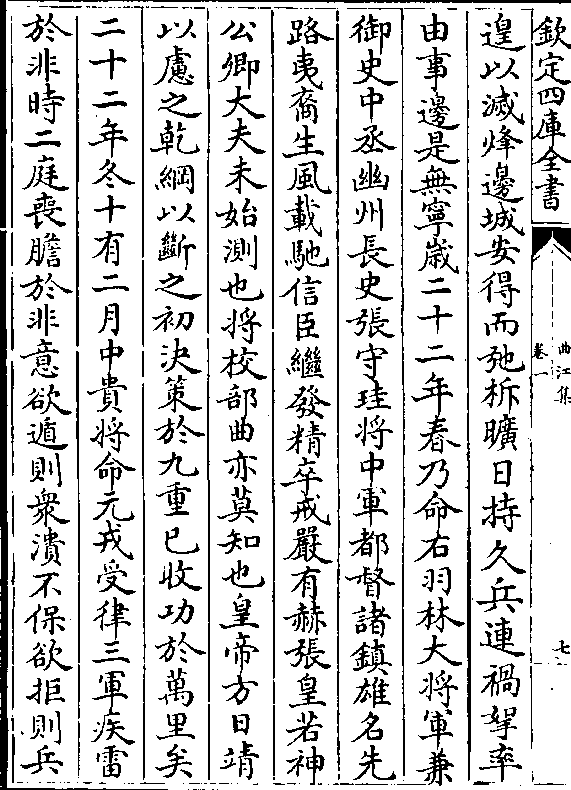 欽定四庫全書
曲江集
卷一
七
遑以滅烽邊城安得而弛柝曠日持久兵連禍拏率
由事邊是無寧歲二十二年春乃命右羽林大將軍兼
御史中丞幽州長史張守珪將中軍都督諸鎮雄名先
路夷裔生風載馳信臣繼發精卒戒嚴有赫張皇若神
公卿大夫未始測也將校部曲亦莫知也皇帝方日靖
以慮之乾綱以斷之初決策於九重已收功於萬里矣
二十二年冬十有二月中貴將命元戎受律三軍疾雷
於非時二庭喪膽於非意欲遁則衆潰不保欲拒則兵